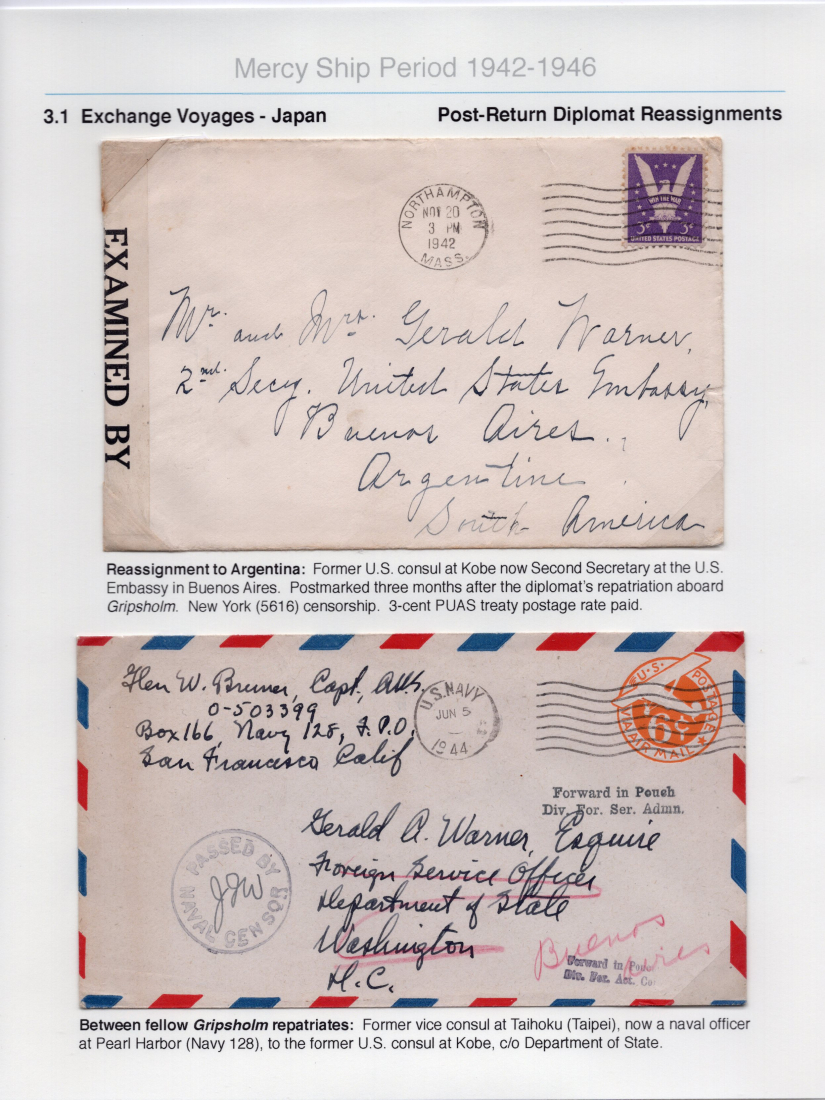 Mercy Ship Period 1942-1946
3.1 Exchange Voyages - Japan Post-Return Diplomat Reassignments
EXAMINED BY
NORTHAMPTON
NOV 20
3 PM
1942
MASS.
WIN THE WAR
3¢ 3¢
UNITED STATES POSTAGE
Mr. and Mrs. Gerald Warner,
2nd. Secy. United States Embassy,
Buenos Aires.
Argentine
South America
Reassignment to Argentina: Former U.S. consul at Kobe now Second Secretary at the U.S.
Embassy in Buenos Aires. Postmarked three months after the diplomat's repatriation aboard
Gripsholm. New York (5616) censorship. 3-cent PUAS treaty postage rate paid.
Glen W. Bruner, Capt, AUS.
O-503399
Box 166, Navy 128, F.P.O.
San Francisco Calif
U.S. NAVY
JUN 5
1944
U.S. POSTAGE
6¢
VIA AIR MAIL
Forward in Pouch
Div. For. Ser. Admn.
Gerald A. Warner, Esquire
Foreign Service Officer
Department of State
Washington
D.C.
PASSED BY
JFW
NAVAL CENSOR
Buenos
Aires
Forward in
Div. For.
Between fellow Gripsholm repatriates: Former vice consul at Taihoku (Taipei), now a naval officer
at Pearl Harbor (Navy 128), to the former U.S. consul at Kobe, c/o Department of State.